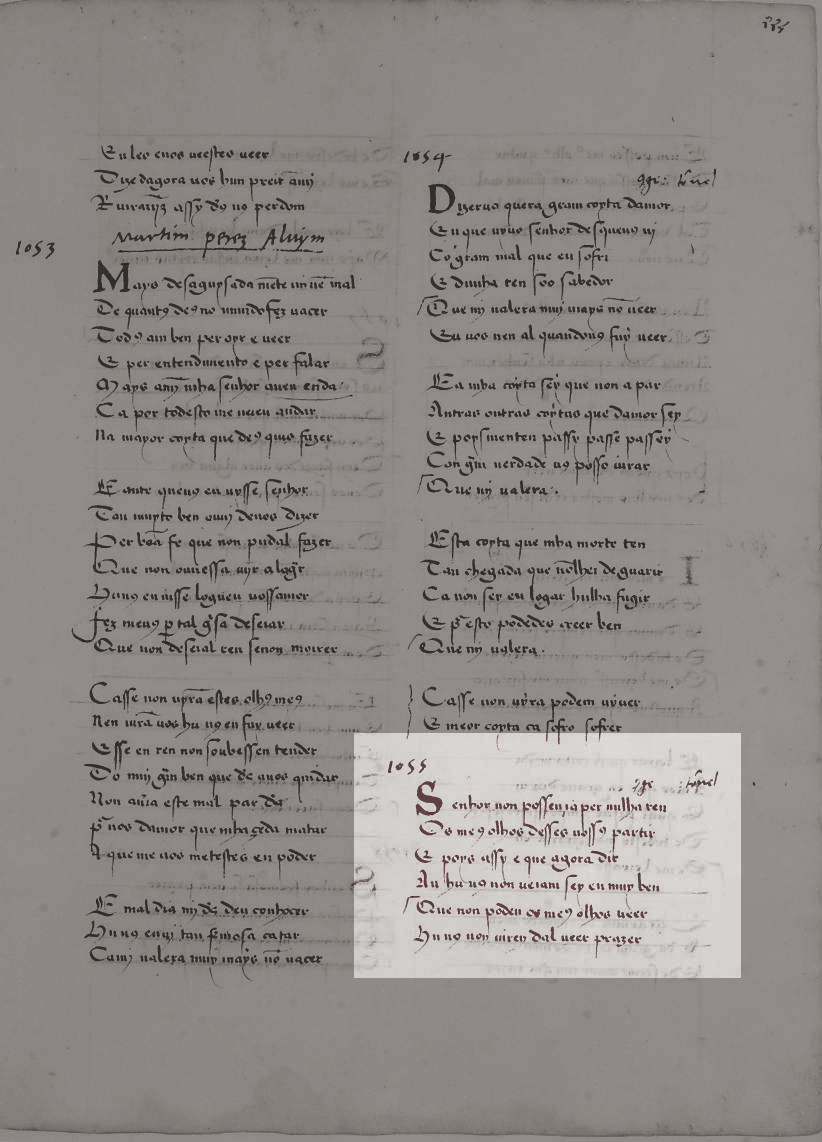 Eu leo enos ueestes ueer
Dize dagora uos hun preit
assy d's u9 perdom
Martim perez Aluym
1053
Mayo desaguysada mẽte mal
De quant9 de9 no mundo fez nacer
Tod9 am ben per oyr e ueer
E per entendimento e per falar
Mays amj mha senhor auen enda
Ca per todesto me ueieu andar
Na mayor coyta que de9 quis fazer
E ante queu9 eu uysse senhor
Tan muyto ben ouuj deuos dizer
Per bõa fe que non pudal fazer
Que non ouuessa uijr a log̃r
Hu u9 eu uisse
fez meu9 p̱ tal g'sa deseiar
Que non deseial ren senon morrer
Casse non uyrã estes olh9 me9
Nen uirã uos hu u9 eu fuy ueer
Esse en ren non soubessen tender
Do muj g̃m ben que d's auos quis dar
Non este mal par d's
p̃ uos damor que mha çeda matar
A que me uos metestes en poder
E mal dia mj d's deu conhocer
Hu u9 eu uj tan fremosa catar
Camj ualera muy mays nõ nacer
1054
Dizer uo quera gram coyta damor
En que uyuo senhor desqueu9 uj
Co g̃ram mal que eu sofri
E dunha ren soo sabedor
Que mj ualera muj mays nõ ueer
Eu uos nen al quandou9 fuy ueer
Ea mha coyta sey que non a par
Antras outras coytas que damor sey
E poys menten passy passe passey
Con g̃m uerdade u9 posso iurar
Que mj ualera.
Esta coyta que mha morte ten
Tan chegada que nõlhei de guarir
Ca non sey eu logar hu lha fugir
E p̃ esto podedes creer ben
Que mj ualera.
Casse non uyra podem uyuer
E meor coyta ca sofro sofrer
1055
Senhor non possen ia per nulha ren
Os me9 olhos desses uoss9 partir
E poys assy e que agora dir
An hu u9 non ueiam sey eu muy ben
Que non poden os me9 olhos ueer
Hu u9 non uiren dal ueer prazer